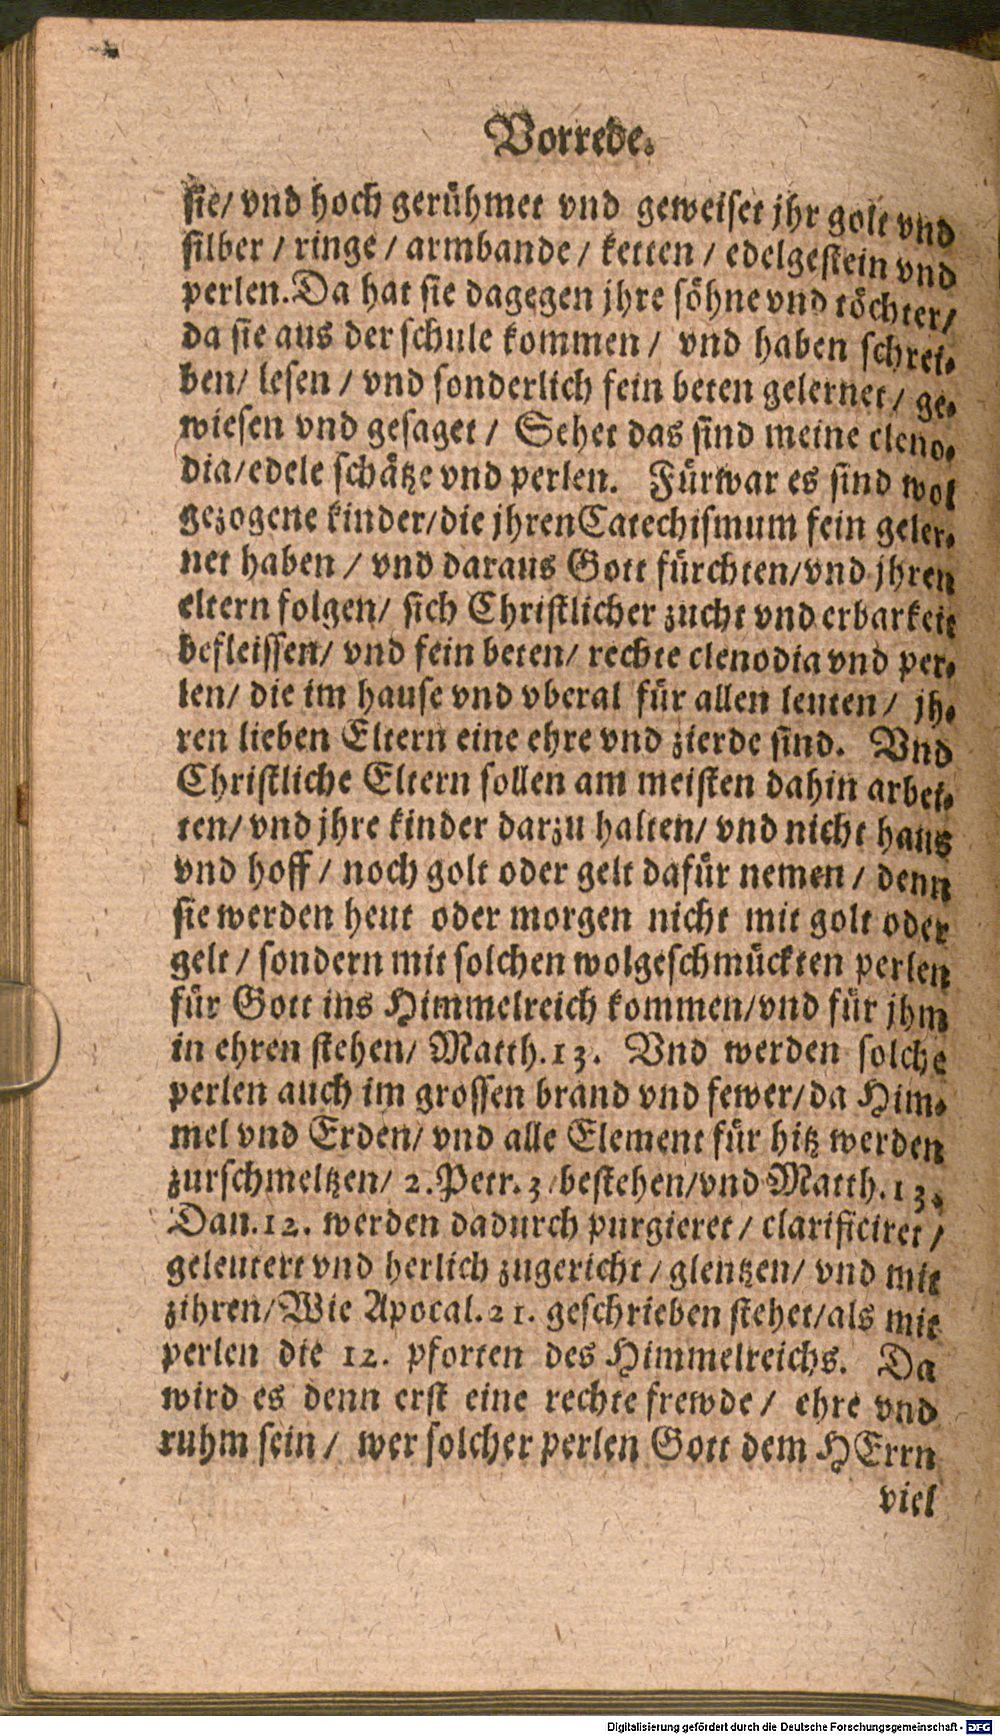 Vorrede.
sie/ vnd hoch gerühmet vnd geweiset jhr golt vnd
silber / ringe / armbande / ketten / edelgestein vnd
perlen. Da hat sie dagegen jhre söhne vnd töchter/
da sie aus der schule kommen / vnd haben schrei-
ben/ lesen / vnd sonderlich fein beten gelernet / ge-
wiesen vnd gesaget / Sehet das sind meine cleno-
dia/edele schätze vnd perlen. Fürwar es sind wol
gezogene kinder/die jhren Catechismum fein geler-
net haben / vnd daraus Gott fürchten/vnd jhren
eltern folgen/ sich Christlicher zucht vnd erbarkeit
befleissen/ vnd fein beten/ rechte clenodia vnd per-
len/ die im hause vnd vberal für allen leuten / jh-
ren lieben Eltern eine ehre vnd zierde sind. Vnd
Christliche Eltern sollen am meisten dahin arbei-
ten/ vnd jhre kinder darzu halten/ vnd nicht haus
vnd hoff / noch golt oder gelt dafür nemen / denn
sie werden heut oder morgen nicht mit golt oder
gelt / sondern mit solchen wolgeschmückten perlen
für Gott ins Himmelreich kommen/vnd für jhm
in ehren stehen/ Matth. 13. Vnd werden solche
perlen auch im grossen brand vnd fewer/da Him-
mel vnd Erden/ vnd alle Element für hitz werden
zurschmeltzen/ 2. Petr. 3 bestehen/vnd Matth. 13.
Dan. 12. werden dadurch purgieret / clarificiret /
geleutert vnd herlich zugericht / glentzen/ vnd mit
zihren/Wie Apocal. 21. geschrieben stehet/als mit
perlen die 12. pforten des Himmelreichs. Da
wird es denn erst eine rechte frewde / ehre vnd
ruhm sein / wer solcher perlen Gott dem HErrn
viel
Digitalisierung gefördert durch die Deutsche Forschungsgemeinschaft - DFG